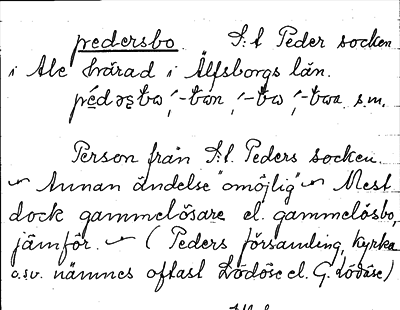 pedersbo. S:t Peder socken
i Ale härad i Älfsborgs län.
s.m.
Person från S:t. Peders socken.
~ Annan ändelse "omöjlig" ~ Mest
dock gammelösare el. gammelösbo,
jämför. ~ ( Peders församling, kyrka
o.sv. nämnes oftast Lödöse el. G. Lödöse)